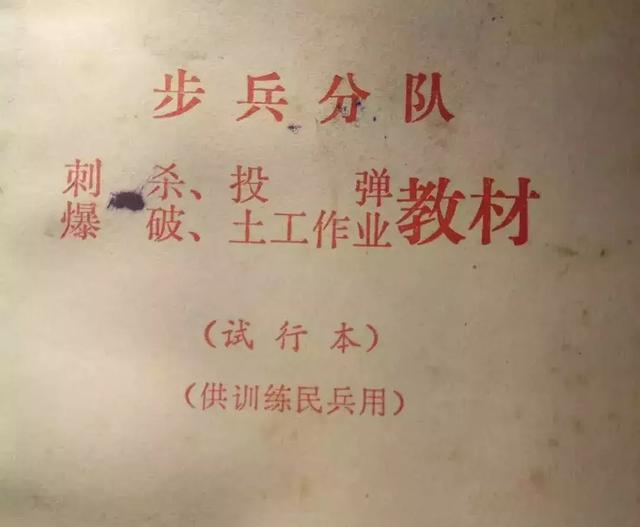 步兵分队
刺杀、投弹
爆破、土工作业教材
（试行本）
（供训练民兵用）